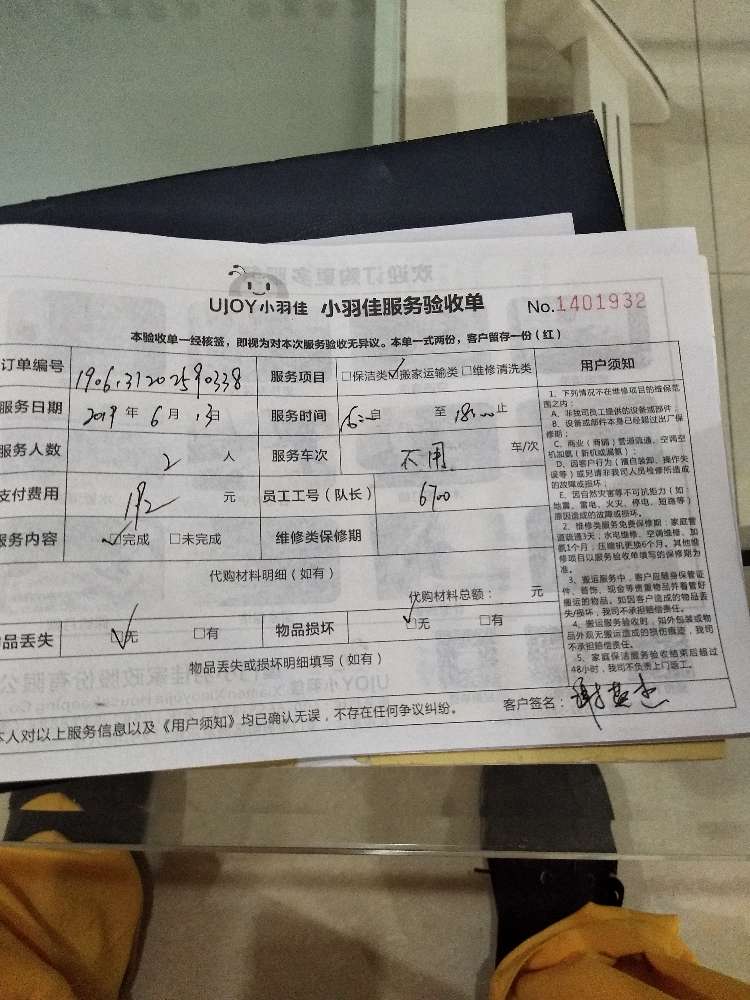 UJOY小羽佳 小羽佳服务验收单 No.1401932
本验收单一经核签，即视为对本次服务验收无异议。本单一式两份，客户留存一份（红）
订单编号 190613120259 服务项目 □保洁类☑搬家运输类□维修清洗类
服务日期 2019年6月13日 服务时间 16:00自 至18:00止
服务人数 2人 服务车次 不用 车/次
支付费用 192元 员工工号（队长） 6700
服务内容 ☑完成 □未完成 维修类保修期
代购材料明细（如有）
代购材料总额： 元
物品丢失 ☑无 □有 物品损坏 ☑无 □有
物品丢失或损坏明细填写（如有）
本人对以上服务信息以及《用户须知》均已确认无误，不存在任何争议纠纷。 客户签名：
用户须知
1、下列情况不在维修项目的维保范
围之内：
A、非我司员工提供的设备或部件；
B、设备或部件本身已经超过出厂保
修期；
C、商业（商铺）管道疏通、空调空
机加氟（新机或漏氟）；
D、因客户行为（擅自装卸、操作失
误等）或另请非我司人员检修所造成
的故障或损坏，
E、因自然灾害等不可抗力（如
地震、雷电、火灾、停电、短路等）
原因造成的故障或损坏。
2、维修类服务免费保修期：家庭管
道疏通3天；水电维修、空调维修、加
氟1个月；压缩机更换6个月。其他维
修项目以服务验收单填写的保修期为
准。
3、搬运服务中，客户应随身保管证
件、首饰、现金等贵重物品并看管好
搬运的物品。如因客户造成的物品丢
失/损坏，我司不承担赔偿责任。
4、搬运服务验收时，如外包装或物
品外观无搬运造成的损伤痕迹，我司
不承担赔偿责任。
5、家庭保洁服务验收结束后超过
48小时，我司不负责上门返工。